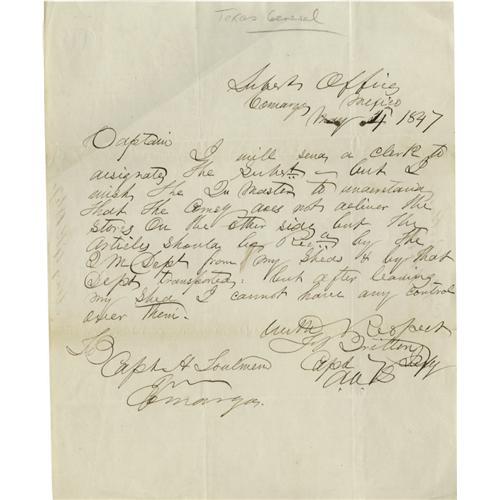 Texas General
Subst. Office
Camargo Mexico
May 4 1847
Captain I will send a clerk to
designate the Subst. — but I
wish the Qr Master to understand
that the Comsy does not deliver the
stores on the other side but the
articles should be Recd by the
Q M Dept from my sheds & by that
Dept transported: but after leaving
my shed I cannot have any control
over them.
With Respect
Britton
To
Capt H
Camargo.